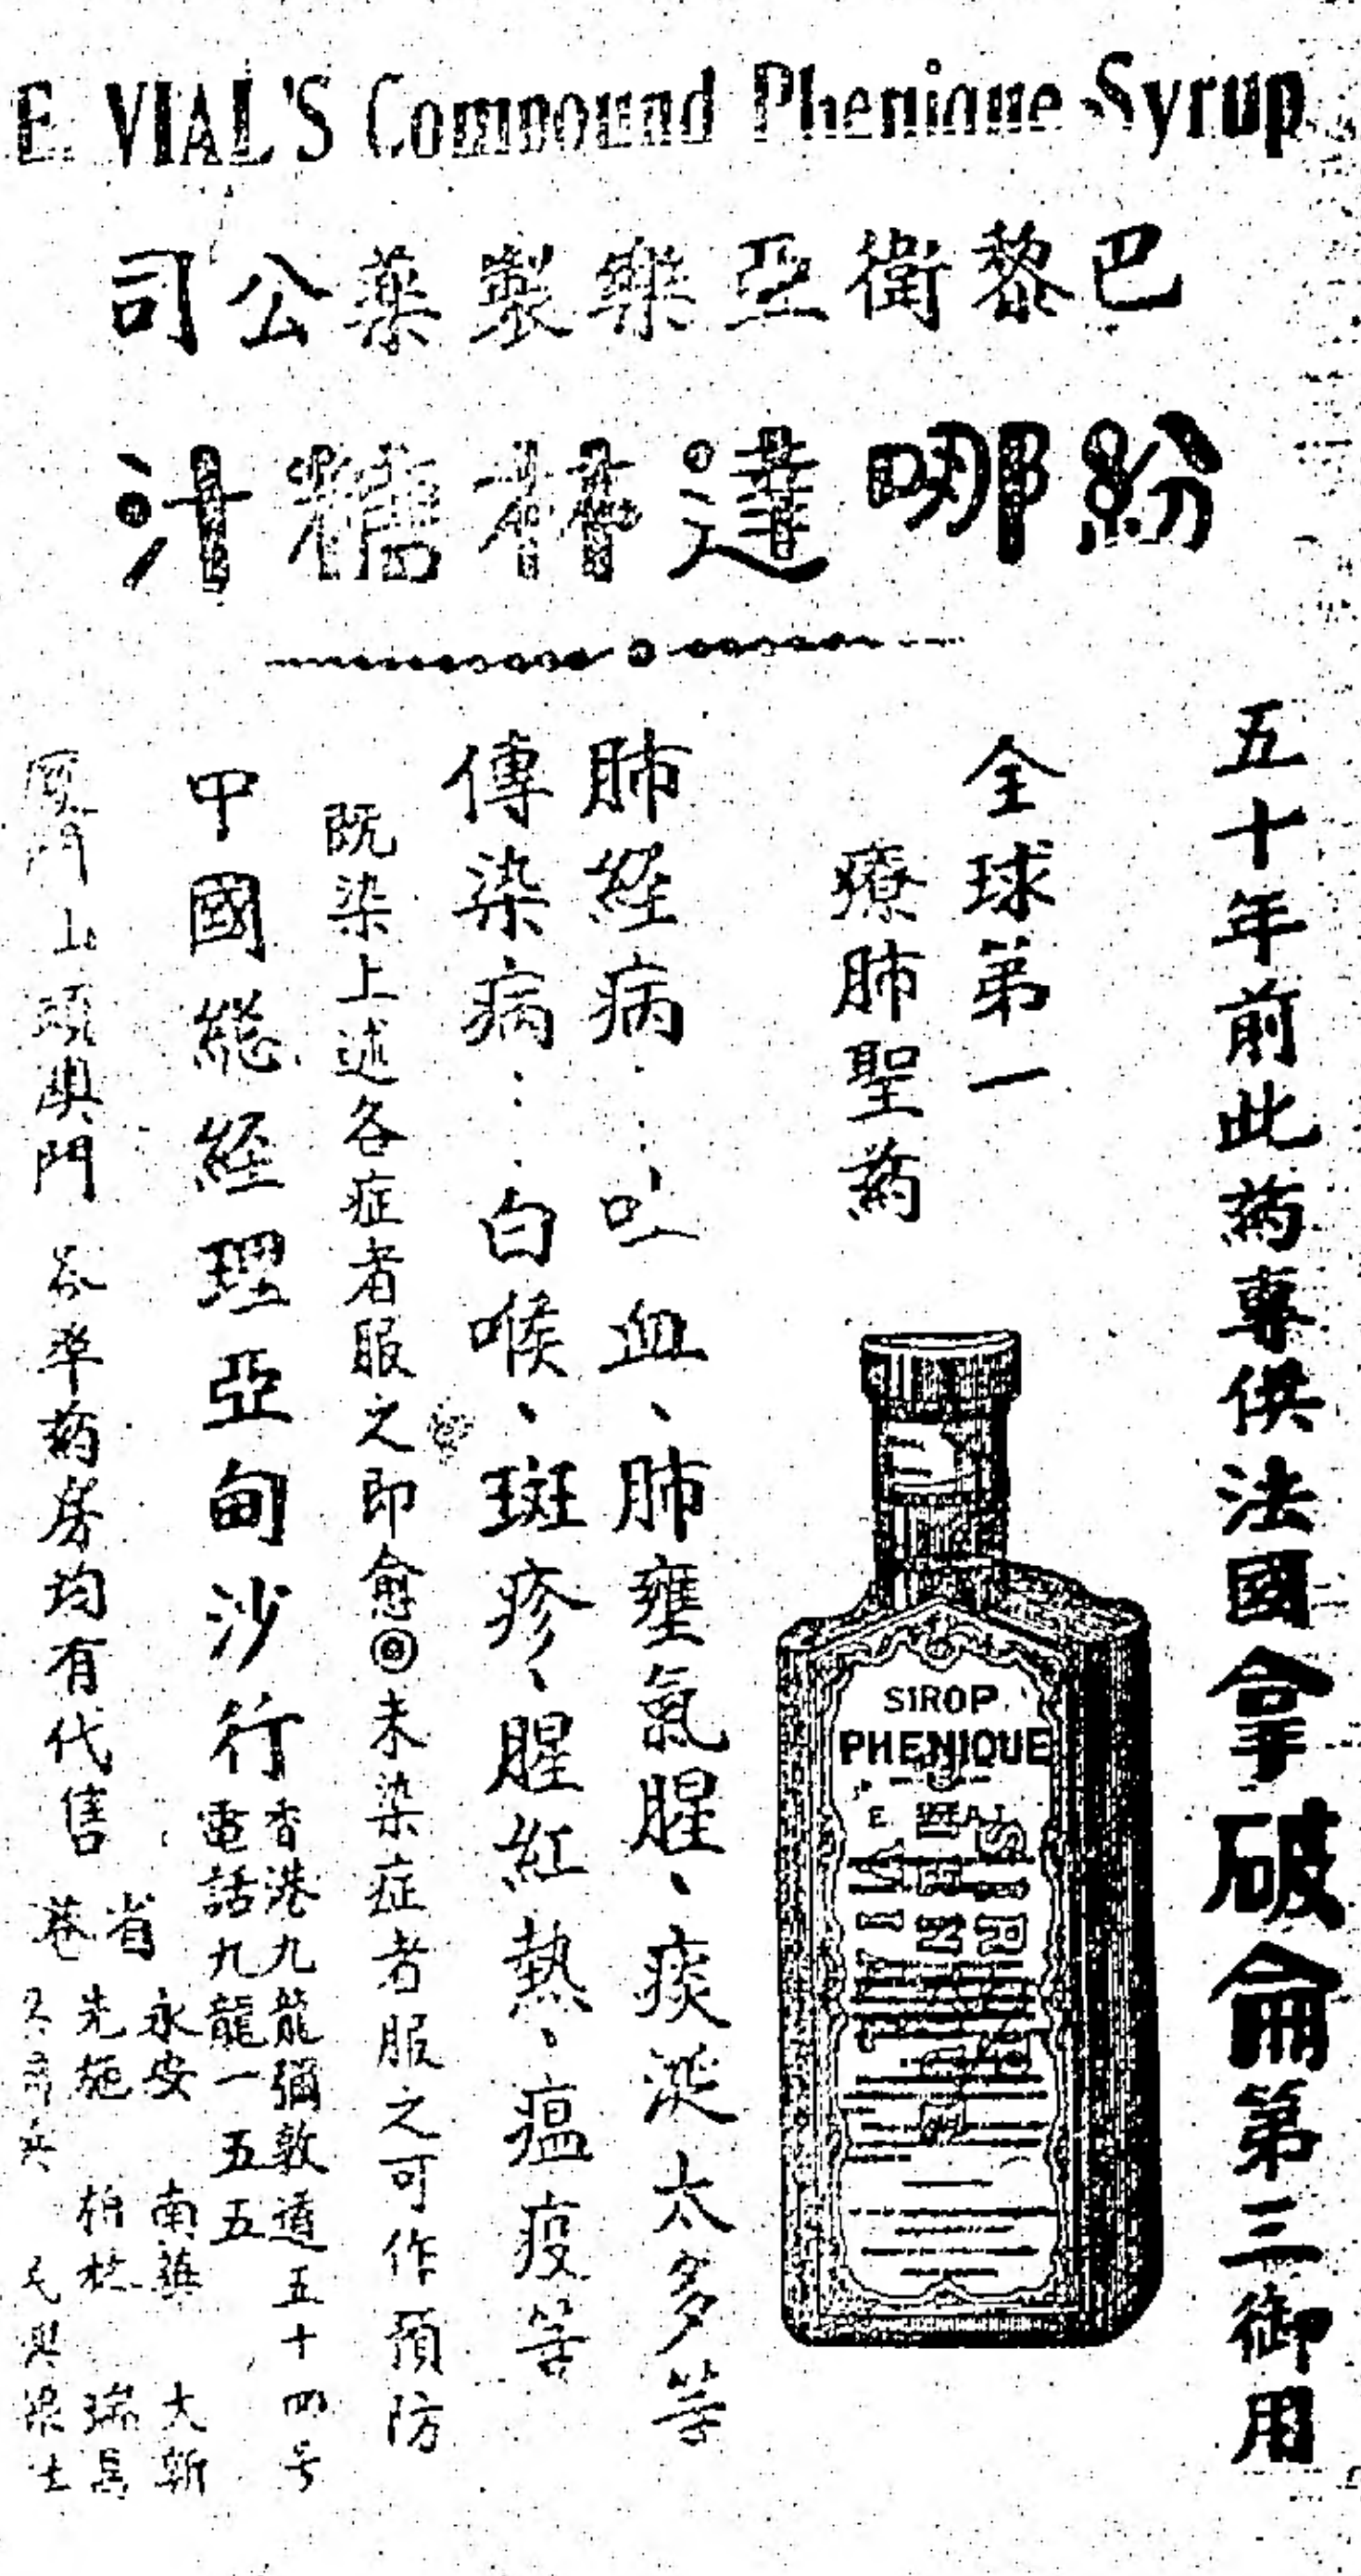 E. VIAL'S Compound Phenique Syrup
巴黎衛亞樂製藥公司
紛哪達林糖汁
五十年前此药專供法國拿破侖第三御用
全球第一
療肺聖药
SIROP
PHENIQUE
肺經病……吐血、肺壅氣腥、痰涎太多等
傳染病……白喉、斑疹、腥紅熱、瘟疫等
既染上述各症者服之即愈◎未染症者服之可作預防
中國総經理亞甸沙行
香港九龍彌敦道五十四号
電話九龍一五五五
厦門汕頭澳門各埠药房均有代售
省港
永安 南華 大新
先施 柏林 瑞昌
民興 梁士